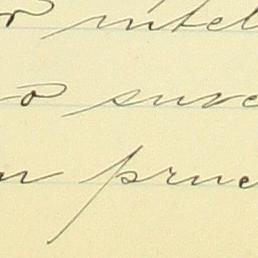 o intel
o suve
n prue